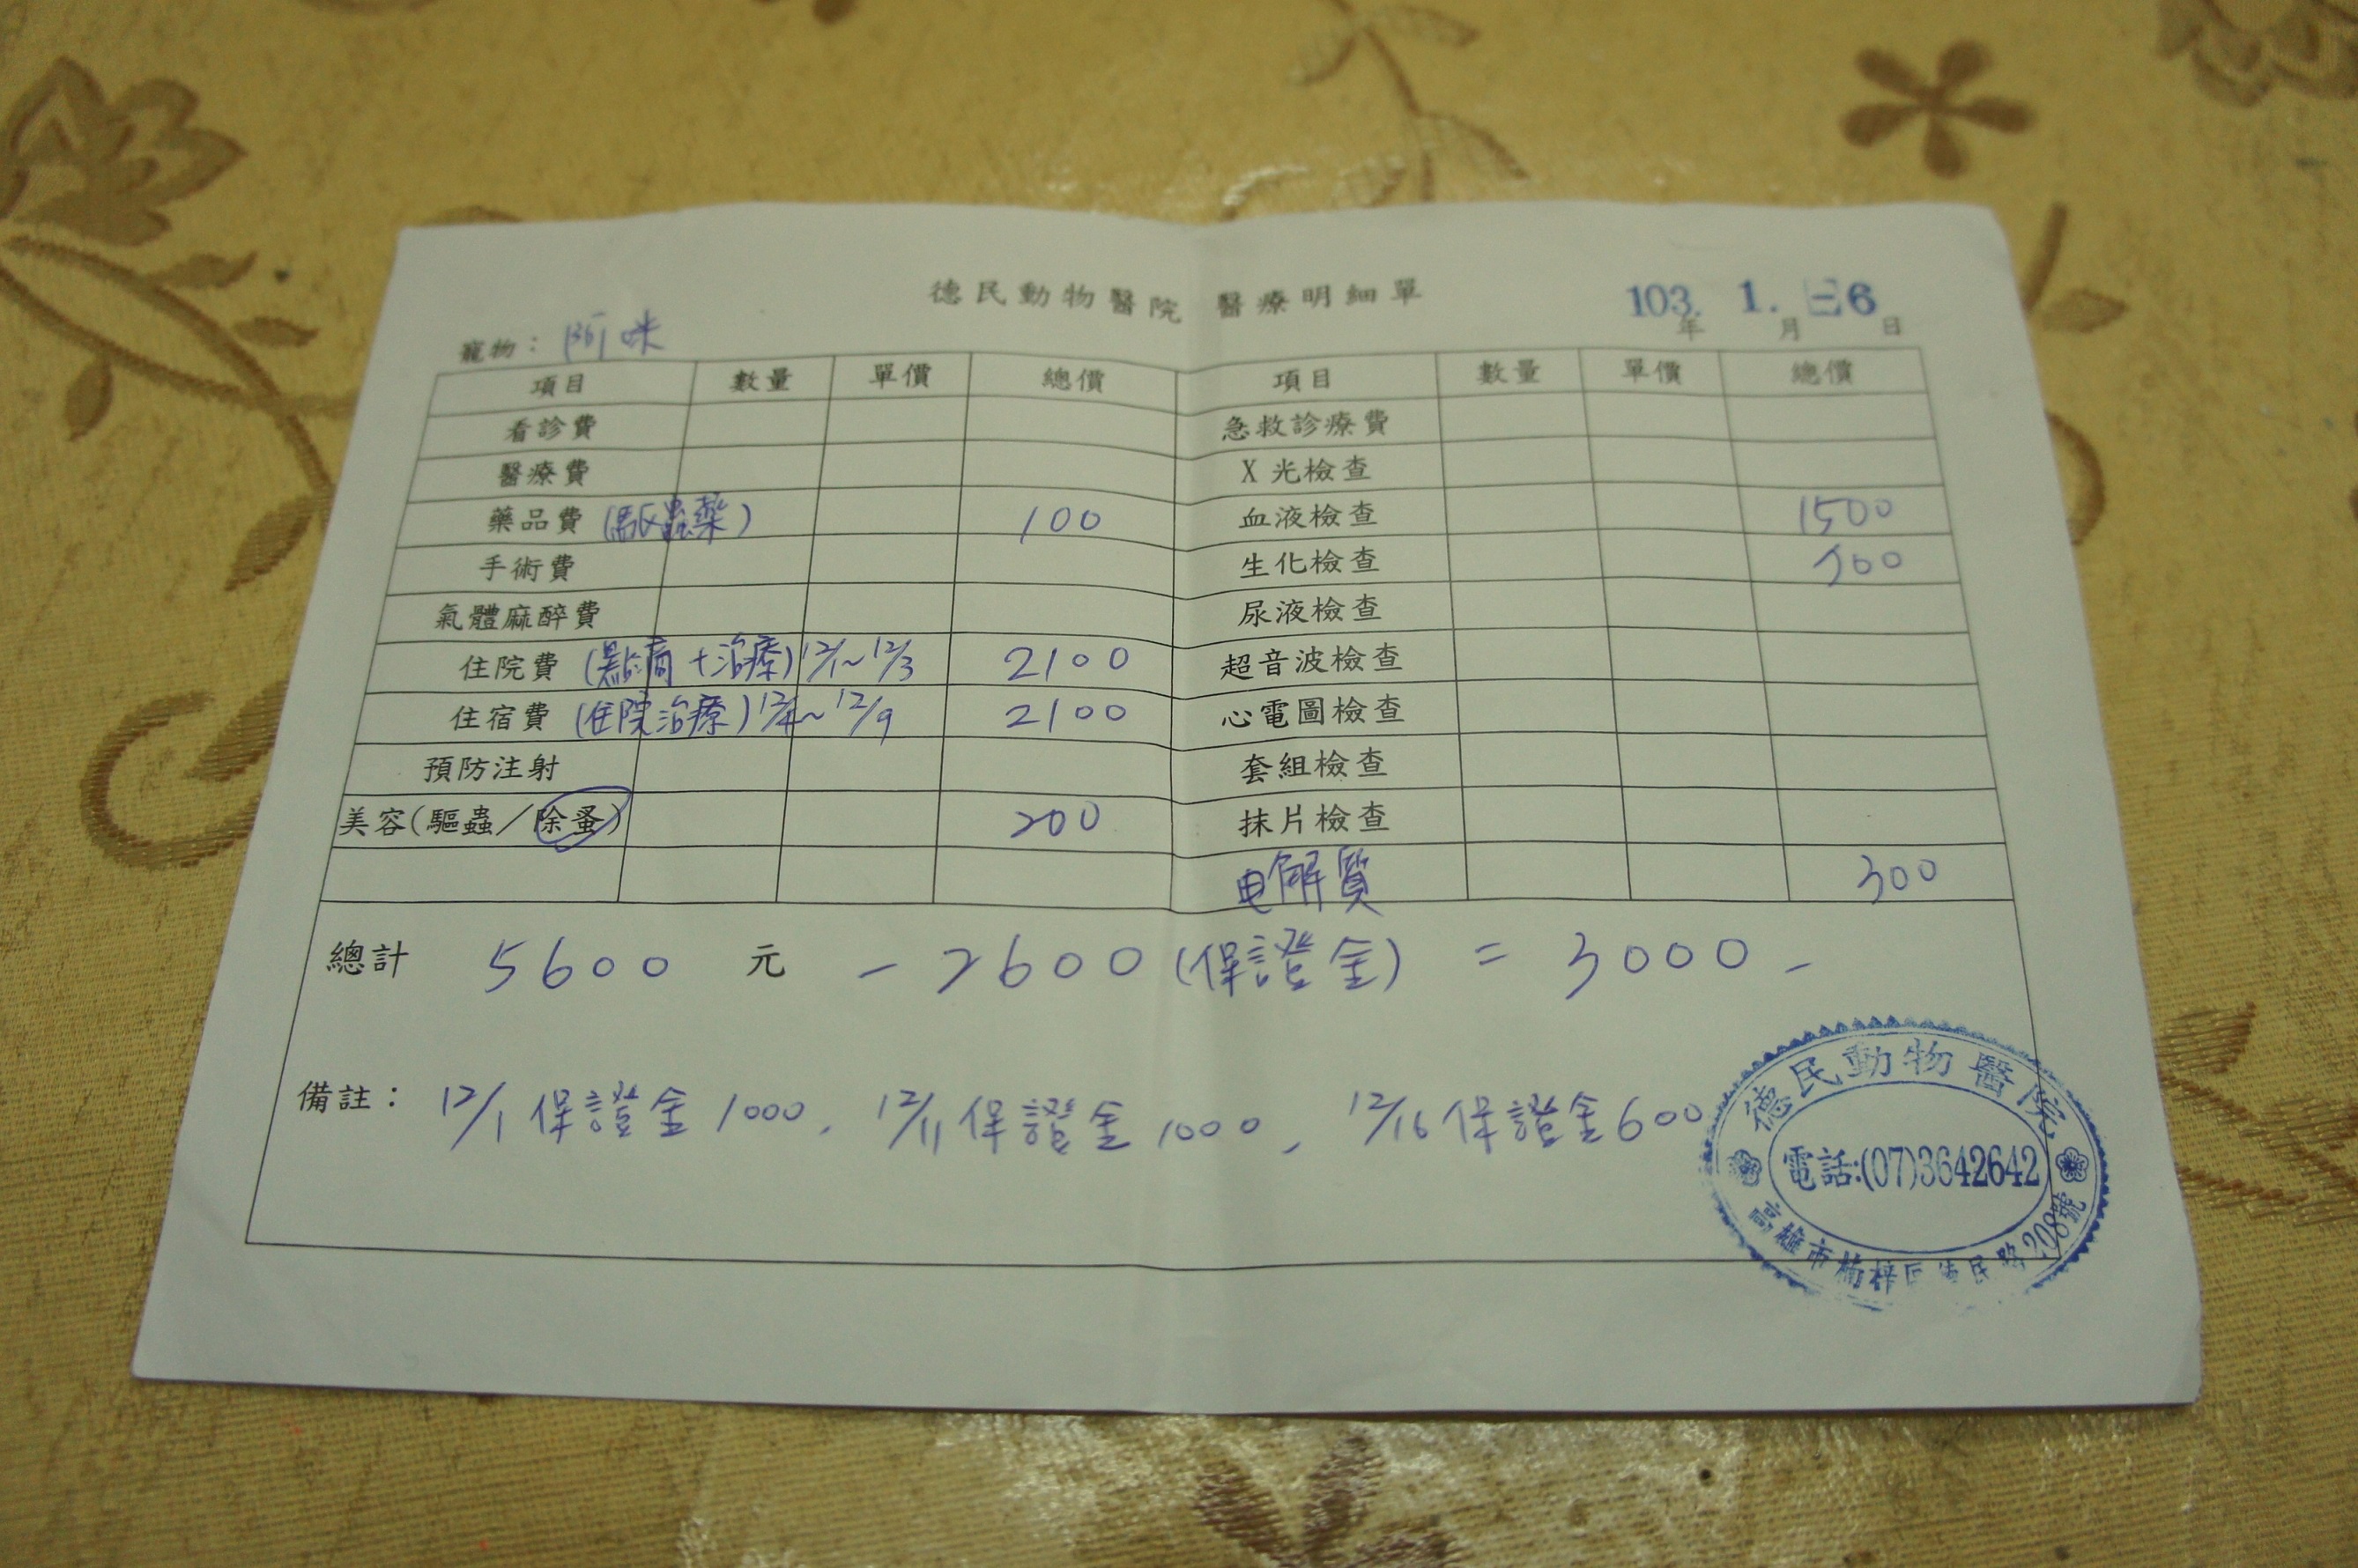 德民動物醫院 醫療明細單
103. 1. 6
年 月 日
寵物：阿咪
項目 數量 單價 總價 項目 數量 單價 總價
看診費 急救診療費
醫療費 X光檢查
藥品費 (驅蟲藥) 100 血液檢查 1500
手術費 生化檢查
氣體麻醉費 尿液檢查
住院費 (點滴+治療) 12/1~12/3 2100 超音波檢查
住宿費 (住院治療) 12/4~12/9 2100 心電圖檢查
預防注射 套組檢查
美容(驅蟲／除蚤) 200 抹片檢查
电解質 300
總計 5600 元 － 2600 (保證金) = 3000 -
備註： 12/1 保證金 1000, 12/11 保證金 1000, 12/16 保證金 600
德民動物醫院
電話:(07)3642642
高雄市楠梓區德民路208號